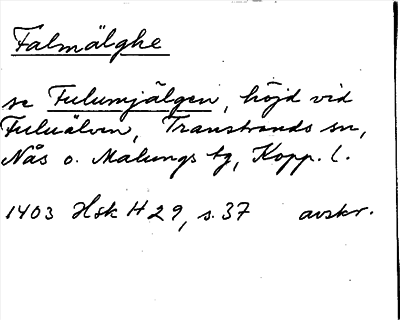 Falmälghe
se Fulumjälgen, höjd vid
Fuluälven, Transtrands sn,
Nås o. Malungs tg, Kopp. l.
1403 Hsk H 29, s. 37 avskr.